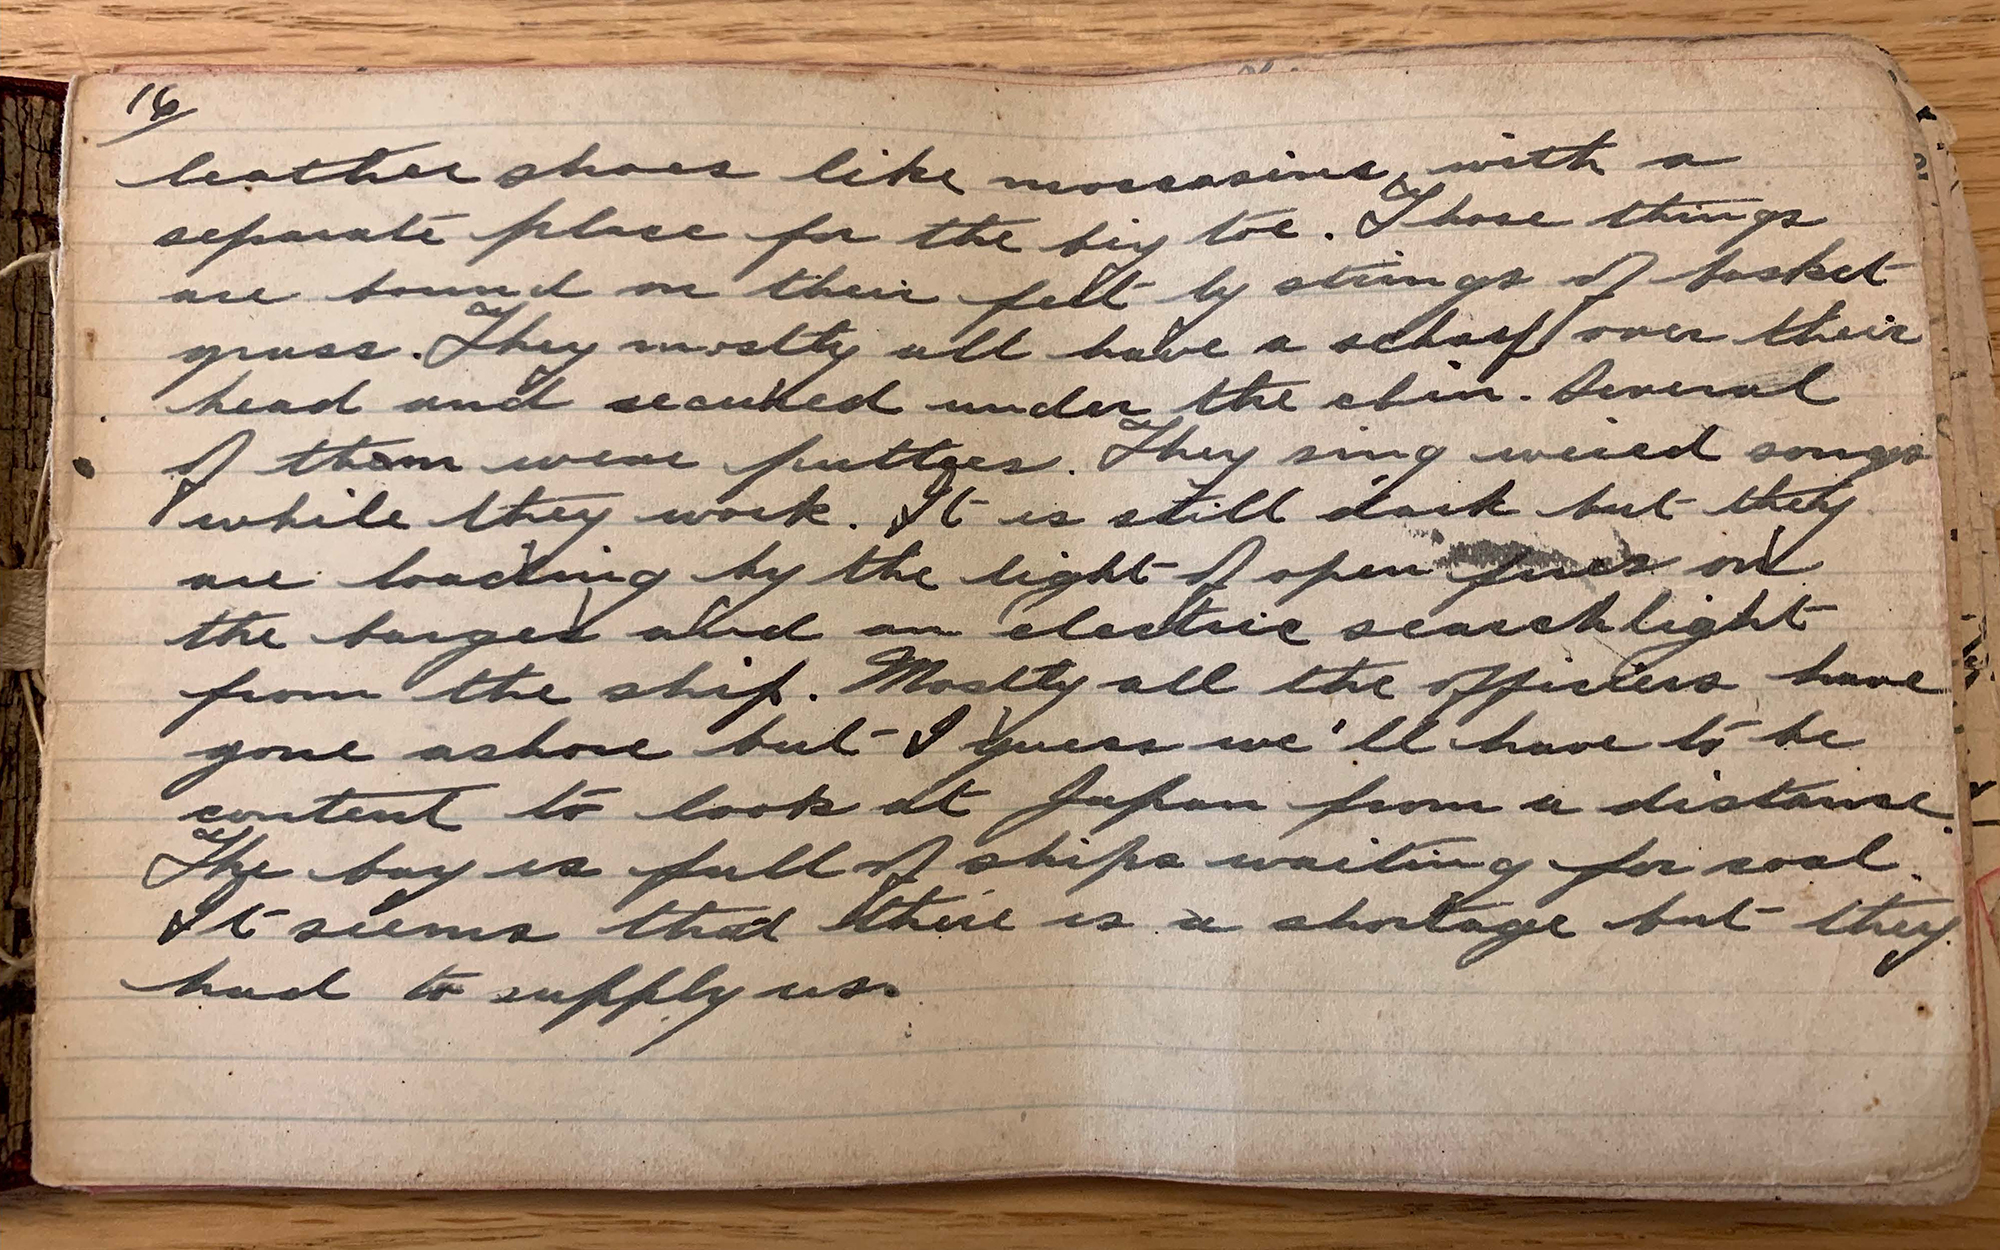 16
leather shoes like moccasins, with a
separate place for the big toe. Those things
are bound on their feet by strings of basket
grass. They mostly all have a scharf over their
head and secured under the chin. Several
of them wear puttees. They sing weird songs
while they work. It is still dark but they
are loading by the light of open fires on
the barges and an electric searchlight
from the ship. Mostly all the officiers have
gone ashore but I guess we'll have to be
content to look at Japan from a distance.
The bay is full of ships waiting for coal.
It seems that there is a shortage but they
had to supply us.